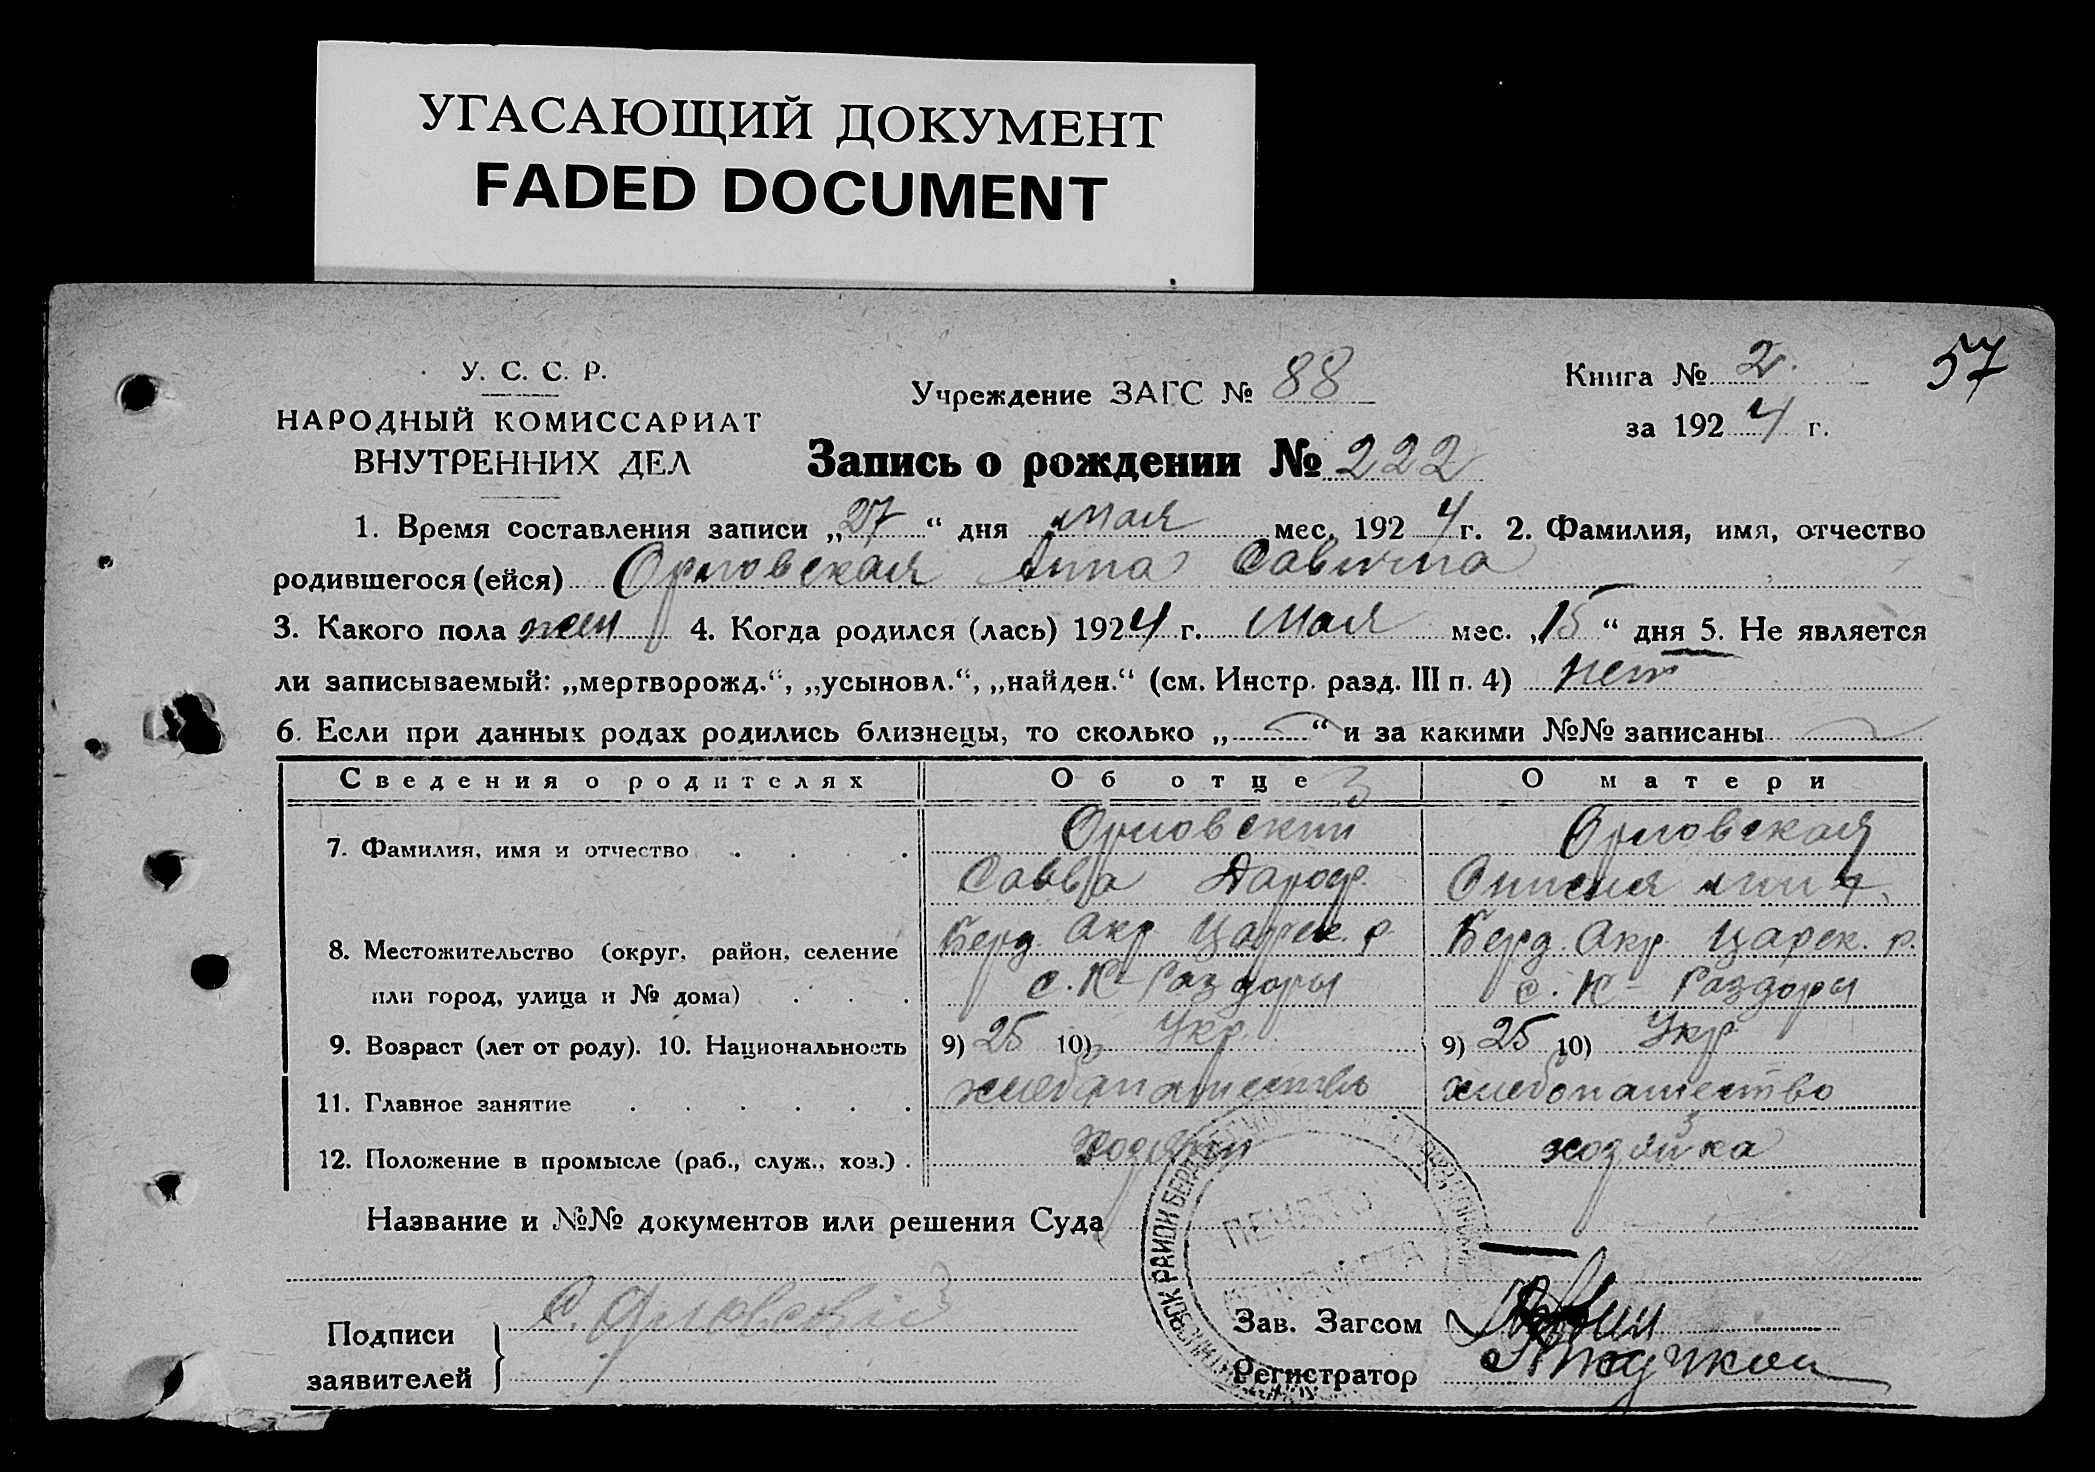 УГАСАЮЩИЙ ДОКУМЕНТ
FADED DOCUMENT
У. С. С. Р.
НАРОДНЫЙ КОМИССАРИАТ
ВНУТРЕННИХ ДЕЛ
Учреждение ЗАГС № 88
Книга № 2.
за 1924 г.
57
Запись о рождении № 222
1. Время составления записи „27“ дня мая мес. 1924 г. 2. Фамилия, имя, отчество
родившегося (ейся) Орловская Анна Савична
3. Какого пола жен 4. Когда родился (лась) 1924 г. Мая мес. „15“ дня 5. Не является
ли записываемый: „мертворожд.“, „усыновл.“, „найден.“ (см. Инстр. разд. III п. 4) нет
6. Если при данных родах родились близнецы, то сколько „—“ и за какими №№ записаны —
Сведения о родителях Об отце О матери
7. Фамилия, имя и отчество Орловский Орловская
Савва Дароф.
8. Местожительство (округ, район, селение Берд. Окр Царек. р. Берд. Окр. Царек. р.
или город, улица и № дома) с. К-Раздоры с. К-Раздоры
9. Возраст (лет от роду). 10. Национальность 9) 25 10) Укр. 9) 25 10) Укр
11. Главное занятие хлебопашество хлебопашество
12. Положение в промысле (раб., служ., хоз.) хозяин хозяйка
Название и №№ документов или решения Суда
ПЕЧАТЬ
Подписи
заявителей
С. Орловский
Зав. Загсом
Регистратор